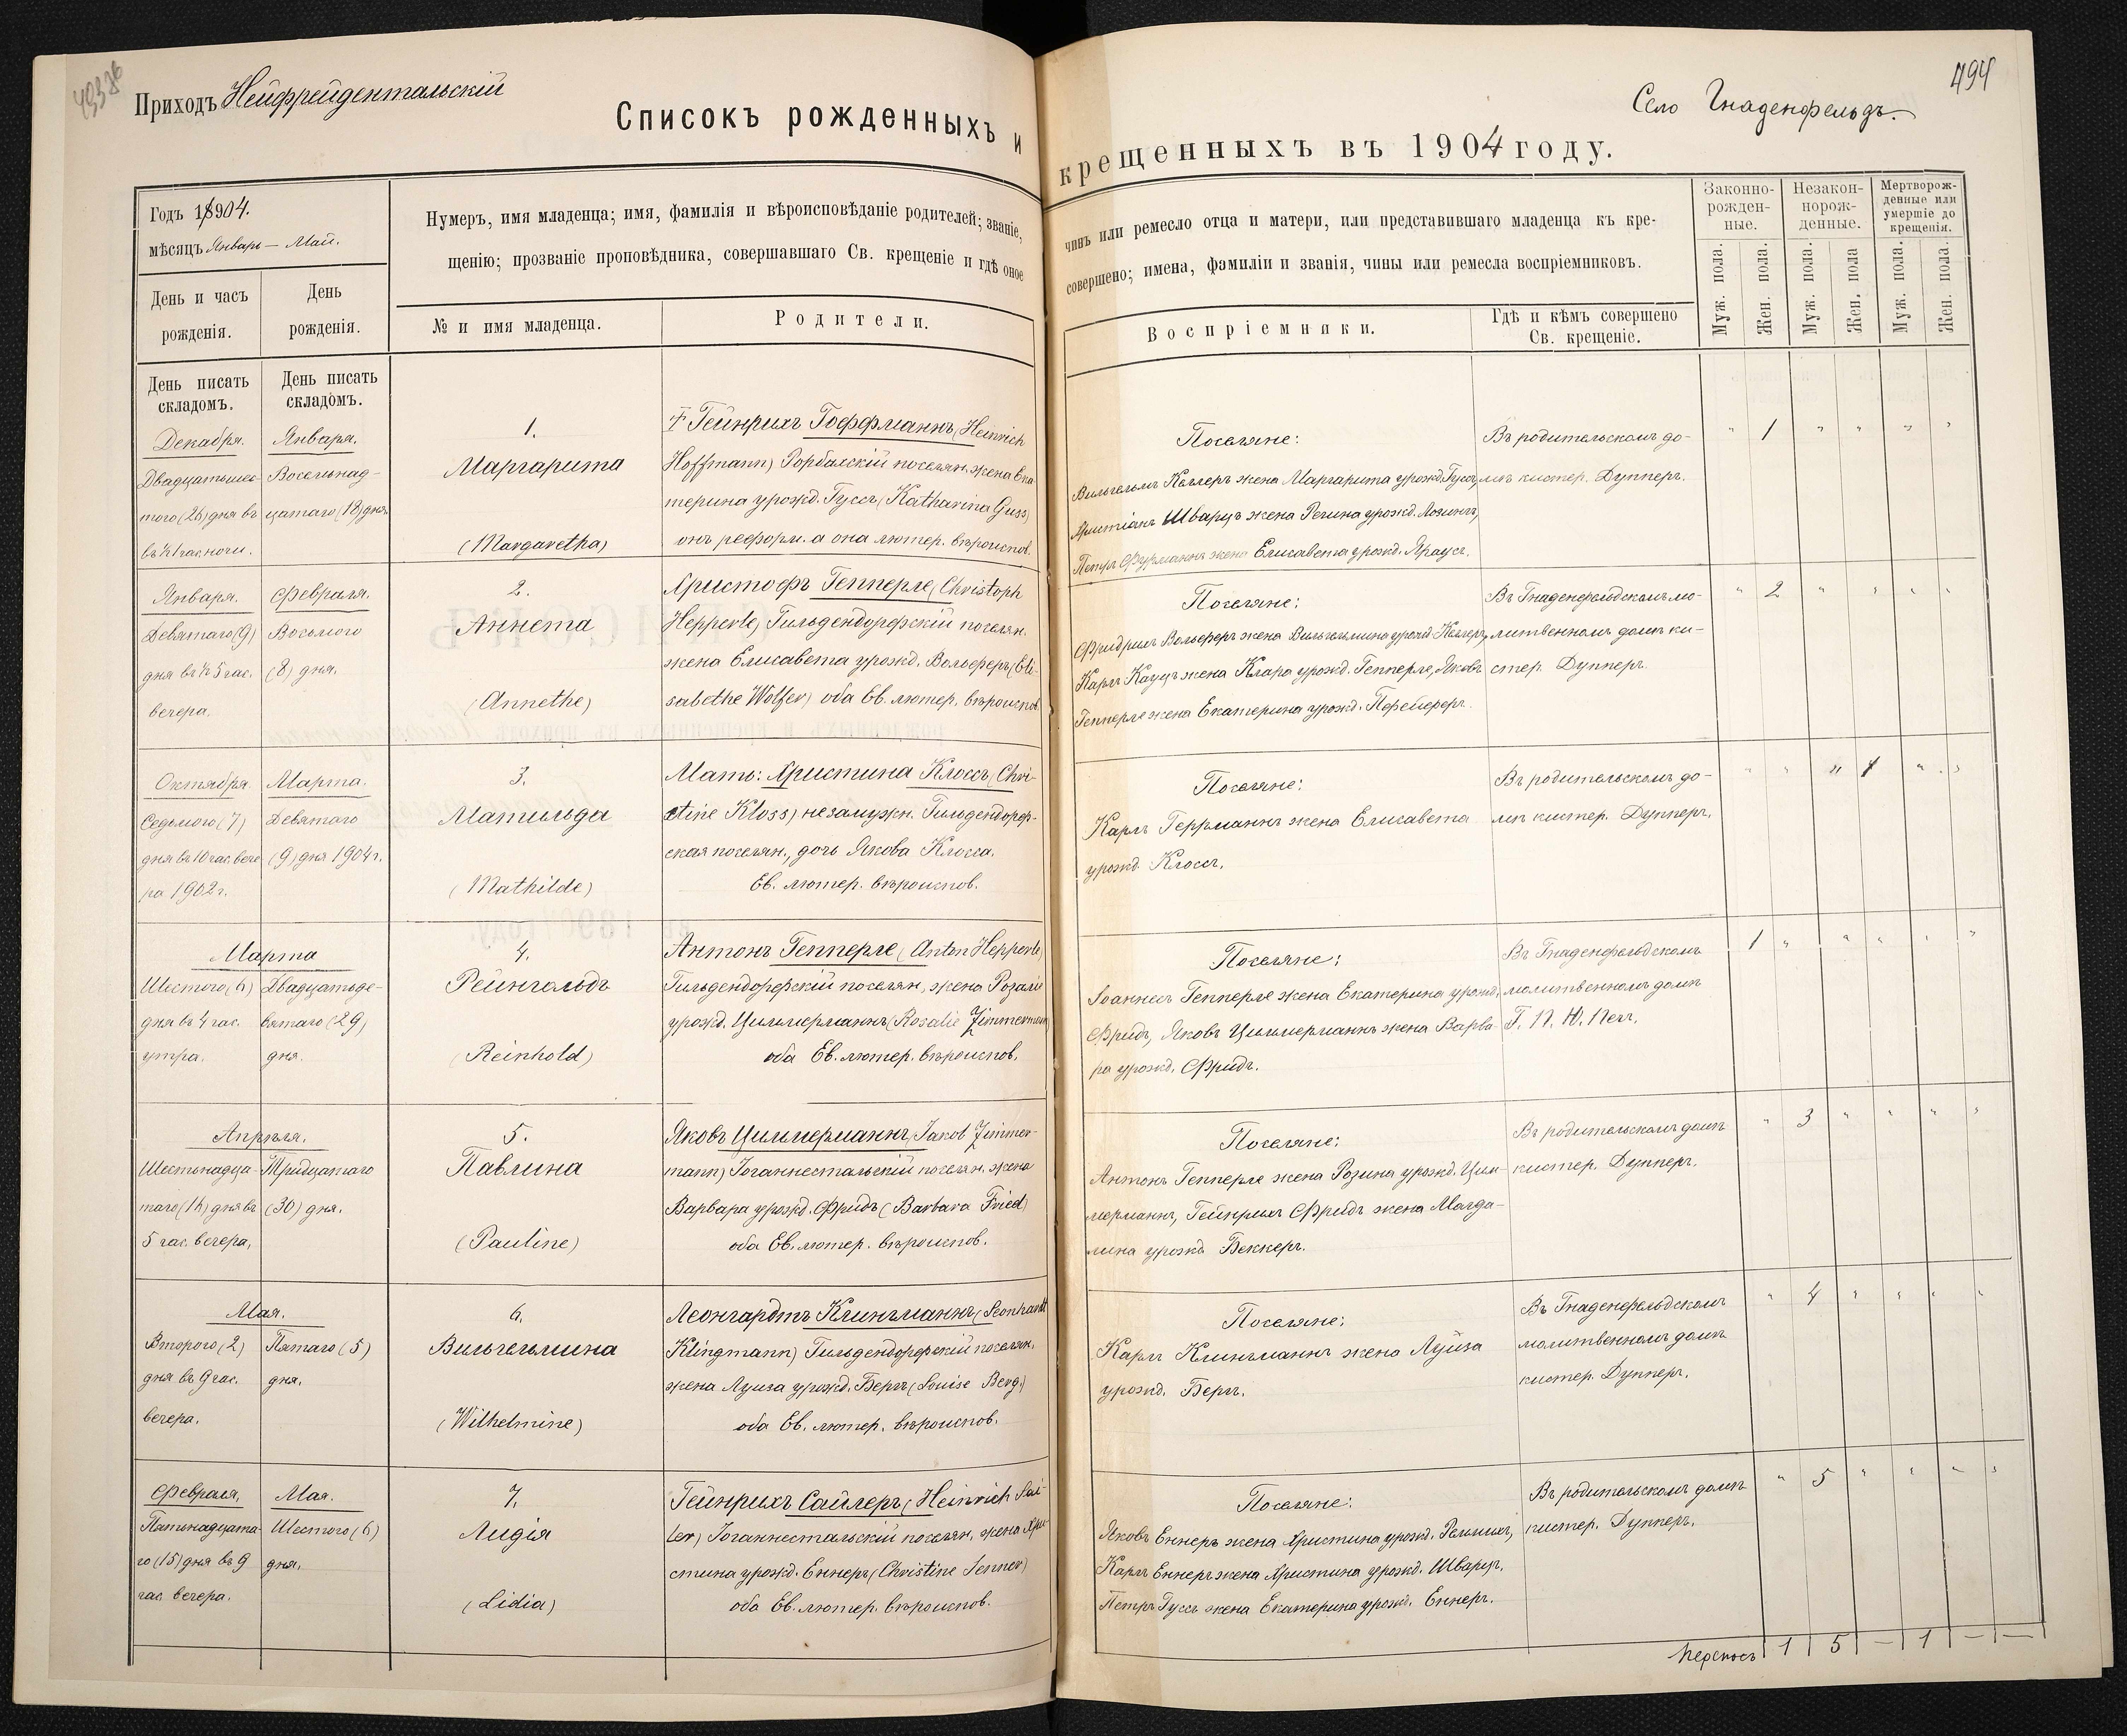 493 об
Приходъ Нейфрейдентальскій
Списокъ рожденныхъ и
Годъ 18904.
мѣсяцъ Январь — Май.
Нумеръ, имя младенца; имя, фамилія и вѣроисповѣданіе родителей; званіе,
щенію; прозваніе проповѣдника, совершавшаго Св. крещеніе и гдѣ оное
День и часъ
рожденія.
День
рожденія.
№ и имя младенца.
Родители.
День писать
складомъ.
День писать
складомъ.
Декабря.
Двадцатьшес-
того (26) дня въ
въ ½1 час. ночи.
Января.
Восемьнад-
цатаго (18) дня.
1.
Маргарита
(Margaretha)
Гейнрихъ Гоффманнъ (Heinrich
Hoffmann) Рорбахскій поселян. жена Ека-
терина урожд. Гуссъ (Katharina Guss)
онъ реформ. а она лютер. вѣроиспов.
Января.
Девятаго (9)
дня въ ½ 5 час.
вечера.
Февраля.
Восьмого
(8) дня.
2.
Аннета
(Annethe)
Христофъ Гепперле (Christoph
Hepperle) Гильдендорфскій поселян.
жена Елисавета урожд. Вольферъ (Eli-
sabethe Wolfer) оба Ев. лютер. вѣроиспов.
Октября.
Седьмого (7)
дня въ 10 час. вече
ра 1902 г.
Марта.
Девятаго
(9) дня 1904 г.
3.
Матильда
(Mathilde)
Мать: Христина Клоссъ (Chri-
stine Kloss) незамужн. Гильдендорф-
ская поселян., дочь Якова Клосса.
Ев. лютер. вѣроиспов.
Марта
Шестого (6)
дня въ 4 час.
утра.
Двадцатьде-
вятаго (29)
дня.
4.
Рейнгольдъ
(Reinhold)
Антонъ Гепперле (Anton Hepperle)
Гильдендорфскій поселян., жена Розалія
урожд. Циммерманнъ (Rosalie Zimmermann)
оба Ев. лютер. вѣроиспов.
Апрѣля.
Шестьнадца-
таго (16) дня въ
5 час. вечера,
Тридцатаго
(30) дня.
5.
Павлина
(Pauline)
Яковъ Циммерманнъ (Jakob Zimmer-
mann) Іоганнестальскій поселян. жена
Варвара урожд. Фридъ (Barbara Fried)
оба Ев. лютер. вѣроиспов.
Мая.
Второго (2)
дня въ 9 час.
вечера.
Пятаго (5)
дня.
6.
Вильгельмина
(Wilhelmine)
Леонгардтъ Клингманнъ (Leonhardt
Klingmann) Гильдендорфскій поселян.
жена Луиза урожд. Бергъ (Louise Berg.)
оба Ев. лютер. вѣроиспов.
Февраля.
Пятьнадцата-
го (15) дня въ 9
час. вечера.
Мая.
Шестого (6)
дня.
7.
Лидія
(Lidia)
Гейнрихъ Сайлеръ (Heinrich Sai-
ler) Іоганнестальскій поселян., жена Хри-
стина урожд. Еннеръ (Christine Jenner)
оба Ев. лютер. вѣроиспов.
494
Село Гнаденфельдъ.
крещенныхъ въ 1904 году.
чинъ или ремесло отца и матери, или представившаго младенца къ кре-
совершено; имена, фэмиліи и званія, чины или ремесла воспріемниковъ.
Воспріемники.
Гдѣ и кѣмъ совершено
Св. крещеніе.
Законно-
рожден-
ные.
Незакон-
норож-
денные.
Мертворож-
денные или
умершіе до
крещенія.
Муж. пола.
Жен. пола.
Муж. пола.
Жен. пола
Муж. пола.
Жен. пола.
Поселяне:
Вильгельмъ Келлеръ жена Маргарита урожд. Гуссъ,
Христіанъ Шварцъ жена Регина урожд.
Петръ Фурманнъ жена Елисавета урожд. Краусъ.
Въ родительскомъ до-
мѣ кистер. Дупперъ.
" 1 " " " "
Поселяне:
Фридрихъ Вольферъ жена Вильгельмина урожд. Келлеръ,
Карлъ Кауцъ жена Клара урожд. Гепперле, Яковъ
Гепперле жена Екатерина урожд.
Въ Гнаденфельдскомъ мо-
литвенномъ домѣ ки-
стер. Дупперъ.
" 2 " " " "
Поселяне:
Карлъ Геррманнъ жена Елисавета
урожд. Клоссъ.
Въ родительскомъ до-
мѣ кистер. Дупперъ.
" " " 1 " "
Поселяне:
Іоаннесъ Гепперле жена Екатерина урожд.
Фридъ, Яковъ Циммерманнъ жена Варва-
ра урожд. Фридъ.
Въ Гнаденфельдскомъ
молитвенномъ домѣ
Г. П. Ю. Пехъ.
1 " " " " "
Поселяне:
Антонъ Гепперле жена Розина урожд. Цим-
мерманнъ, Гейнрихъ Фридъ жена Магда-
лина урожд. Беккеръ.
Въ родительскомъ домѣ
кистер. Дупперъ.
" 3 " " " "
Поселяне:
Карлъ Клингманнъ жена Луиза
урожд. Бергъ.
Въ Гнаденфельдскомъ
молитвенномъ домѣ
кистер. Дупперъ.
" 4 " " " "
Поселяне:
Яковъ Еннеръ жена Христина урожд.
Карлъ Еннеръ жена Христина урожд. Шварцъ,
Петръ Гуссъ жена Екатерина урожд. Еннеръ.
Въ родительскомъ домѣ
кистер. Дупперъ.
" 5 " " " "
Переносъ 1 5 — 1 — —